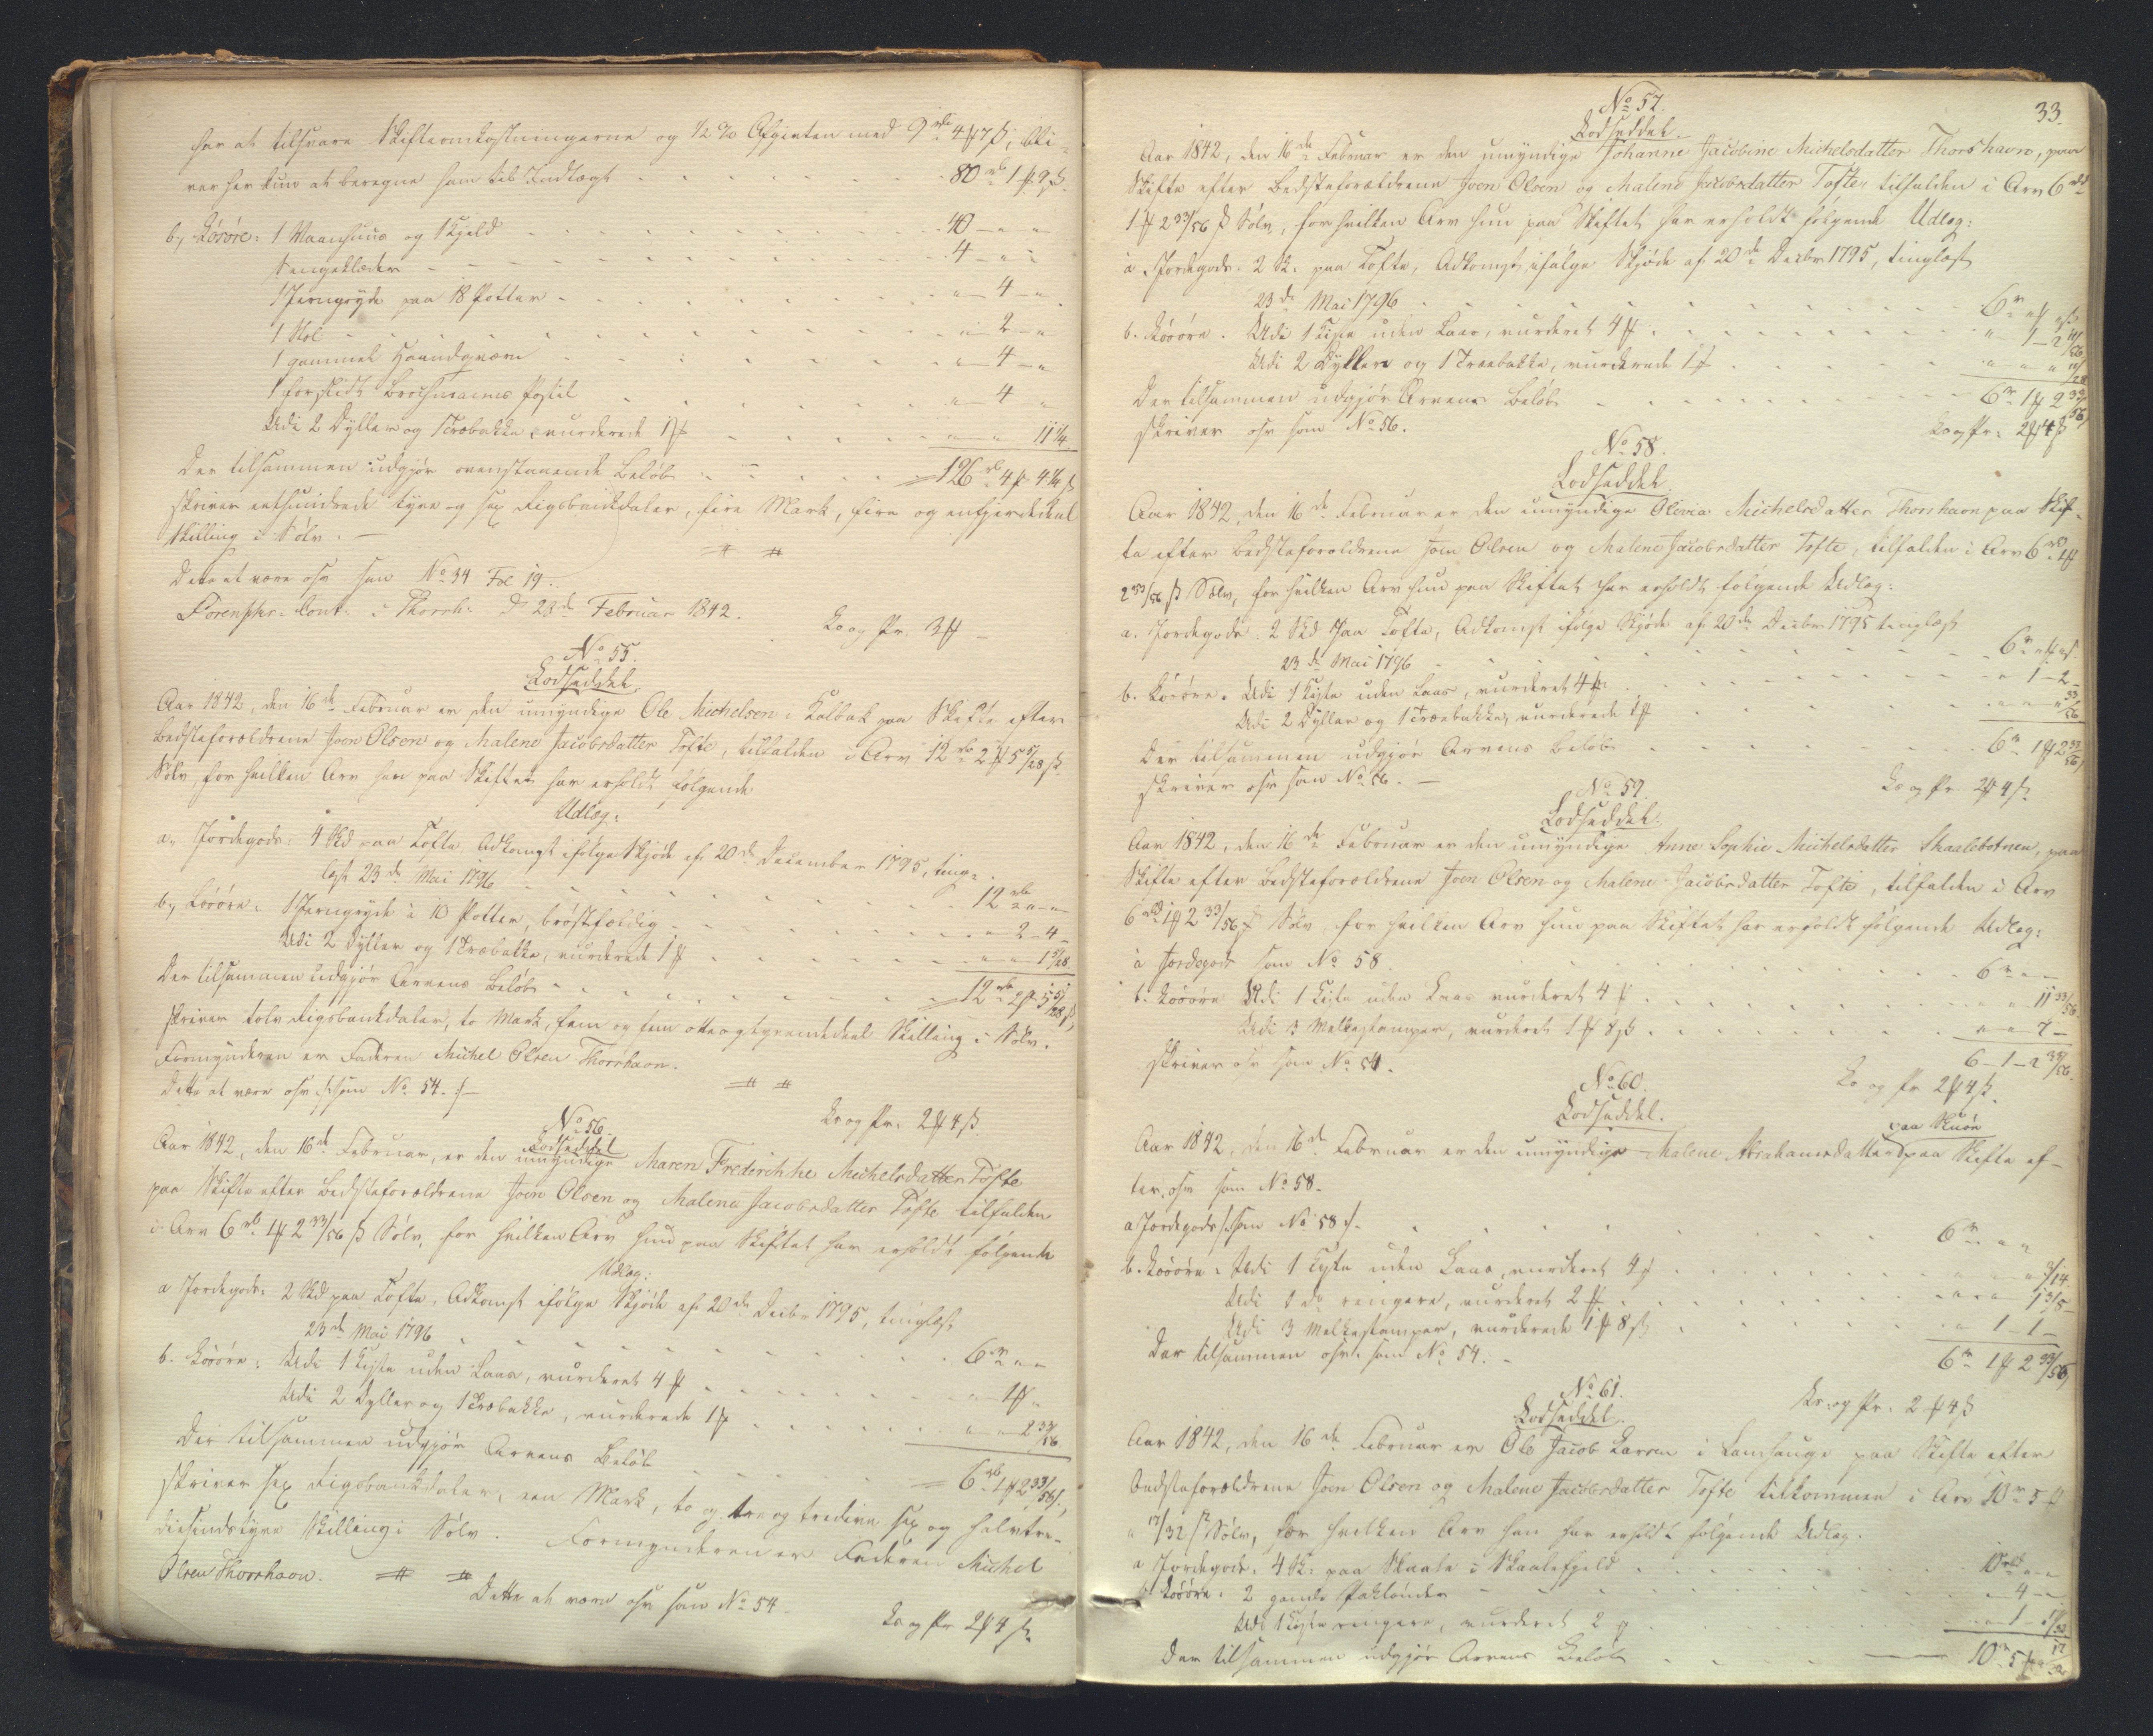 har at tilsvare Skifteomkostningerne og ½ % Afgiften med 9 rbd 4 ℔ 7 ß, bli-
ver her kun at beregne ham til Indtægt 80 rbd 1 ℔ 9 ß
b., Løsøre: 1 Vaanhuus og 1 Kjeld 40 " "
Sengeklæder 4 " "
1 Jerngryde paa 18 Potter " 4 "
1 Stol " 2 "
1 gammel Haandqværn " 4 "
1 forslidt Brochmanns Postil " 4 "
Udi 2 Dyller og 1 Træbakke vurderede 1 ℔ " " 11¼
Der tilsammen udgjør ovenstaaende Beløb 126 rbd 4 ℔ 4¼ ß
skriver eethundrede tyve og sex Rigsbankdaler, fire Mark, fire og enfjerdedeel
Skilling i Sølv.
Dette at være osv som No 34 Fol 19.
Sorenskr: Cont: i Thorsh: D 28de Februar 1842. Læg Pr. 3 ℔
No 55.
Lodseddel
Aar 1842, den 16de Februar er den umyndige Ole Michelsen i Kalbak paa Skifte efter
Bedsteforældrene Joen Olsen og Malene Jacobsdatter Tofte, tilfalden i Arv 12 rbd 2 ℔ 5 5/28 ß
Sølv, for hvilken Arv han paa Skiftet har erholdt følgende
Udlæg:
a., Jordegods: 4 Skd paa Tofte, Adkomst ifølge Skjøde af 20de December 1795, ting-
læst 23de Mai 1796 12 rbd " "
b., Løsøre: 1 Jerngryde à 10 Potter, brøstfældig " 2 - 4 -
Udi 2 Dyller og 1 Træbakke, vurderede 1 ℔ " " 1 5/28
Der tilsammen udgjør Arvens Beløb 12 rbd 2 ℔ 5 5/28 ß,
skriver tolv Rigsbankdaler, to Mark, fem og fem otteogtyvendedeel Skilling i Sølv.
Formynderen er Faderen Michel Olsen Thorshavn.
Dette at være osv /: som No 54. :/
Læg Pr. 2 ℔ 4 ß
No 56.
Lodseddel
Aar 1842, den 16de Februar, er den umyndige Maren Frederikke Michelsdatter Tofte
paa Skifte efter Bedsteforældrene Joen Olsen og Malene Jacobsdatter Tofte tilfalden
i Arv 6 rbd 1 ℔ 2 33/56 ß Sølv, for hvilken Arv hun paa Skiftet har erholdt følgende
Udlæg:
a Jordegods: 2 Skd paa Tofte, Adkomst ifølge Skjøde af 20de Decbr 1795, tinglæst
23de Mai 1796 6 rbd " "
b. Løsøre: Udi 1 Kiste uden Laas, vurderet 4 ℔ " 1 ℔ "
Udi 2 Dyller og 1 Træbakke, vurderede 1 ℔ " " 2 33/56
Der tilsammen udgjør Arvens Beløb 6 rbd 1 ℔ 2 33/56 ß,
skriver sex Rigsbankdaler, een Mark, to og tre og tredive sex og halvtre-
diesindstyve Skilling i Sølv. Formynderen er Faderen Michel
Olsen Thorshavn.
Dette at være osv som No 54.
Læg Pr 2 ℔ 4 ß
33.
No 57.
Lodseddel.
Aar 1842, den 16de Februar er den umyndige Johanne Jacobine Michelsdatter Thorshavn, paa
Skifte efter Bedsteforældrene Joen Olsen og Malene Jacobsdatter Tofte, tilfalden i Arv 6 rbd
1 ℔ 2 33/56 ß Sølv, for hvilken Arv hun paa Skiftet har erholdt følgende Udlæg:
a Jordegods: 2 Sk: paa Tofte, Adkomst ifølge Skjøde af 20de Decbr 1795, tinglæst
23de Mai 1796 6 rbd " ℔ " ß
b. Løsøre. Udi 1 Kiste uden Laas, vurderet 4 ℔ " 1 - 2
Udi 2 Dyller og 1 Træbakke, vurderede 1 ℔
Der tilsammen udgjør Arvens Beløb 6 rbd 1 ℔ 2 33/56
skriver osv som No 56. Læg Pr: 2 ℔ 4 ß
No 58.
Lodseddel.
Aar 1842, den 16de Februar er den umyndige Olivia Michelsdatter Thorshavn paa Skif-
te efter Bedsteforældrene Joen Olsen og Malene Jacobsdatter Tofte, tilfalden i Arv 6 rbd 1 ℔
2 33/56 ß Sølv, for hvilken Arv hun paa Skiftet har erholdt følgende Udlæg:
a. Jordegods: 2 Skd paa Tofte, Adkomst ifølge Skjøde af 20de Decbr 1795 tinglæst
23de Mai 1796 6 rbd " ℔ " ß
b. Løsøre. Udi 1 Kiste uden Laas, vurderet 4 ℔ " 1 - 2 -
Udi 2 Dyller og 1 Træbakke, vurderede 1 ℔ " " " 33/56
Der tilsammen udgjør Arvens Beløb 6 rbd 1 ℔ 2 33/56
skriver osv som No 56.
Læg Pr 2 ℔ 4 ß
No 59.
Lodseddel.
Aar 1842, den 16de Februar er den umyndige Anne Sophie Michelsdatter Skaalebotnen, paa
Skifte efter Bedsteforældrene Joen Olsen og Malene Jacobsdatter Tofte, tilfalden i Arv
6 rbd 1 ℔ 2 33/56 ß Sølv, for hvilken Arv hun paa Skiftet har erholdt følgende Udlæg:
a Jordegods som No 58 6 rbd " "
b. Løsøre Udi 1 Kiste uden Laas vurderet 4 ℔ " " 11 33/56
Udi 3 Melkestamper, vurderet 1 ℔ 8 ß " " 7 -
6 - 1 - 2 33/56
skriver osv som No 54.
Læg Pr 2 ℔ 4 ß
No 60.
Lodseddel.
paa Skuøe
Aar 1842, den 16de Februar er den umyndige Malene Abrahamsdatter paa Skifte ef-
ter, osv som No 58.
a Jordegods /: som No 58 :/ 6 rbd " "
b. Løsøre: Udi 1 Kiste uden Laas, vurderet 4 ℔
Udi 1 do ringere, vurderet 2 ℔
Udi 3 Melkestamper, vurderede 1 ℔ 8 ß " 1 - 1 -
Der tilsammen osv. som No 54. 6 rbd 1 ℔ 2 33/56
Læg Pr. 2 ℔ 4 ß
No 61.
Lodseddel.
Aar 1842, den 16de Februar er Ole Jacob Larsen i Lamhauge paa Skifte efter
Bedsteforældrene Joen Olsen og Malene Jacobsdatter Tofte tilkommen i Arv 10 rbd 5 ℔
" 17/32 ß Sølv, for hvilken Arv han har erholdt følgende Udlæg.
a Jordegods. 4 Sk: paa Skaale i Skaalefjeld 10 rbd " "
b. Løsøre: 2 gamle " 4 -
Udi 1 Kiste ringere, vurderet 2 ℔ " 1 - 17/32
Der tilsammen udgjør Arvens Beløb 10 rbd 5 ℔ " 17/32